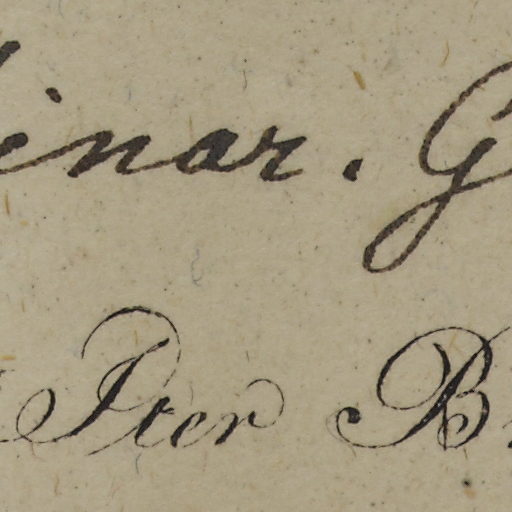 inar. G
Iter B